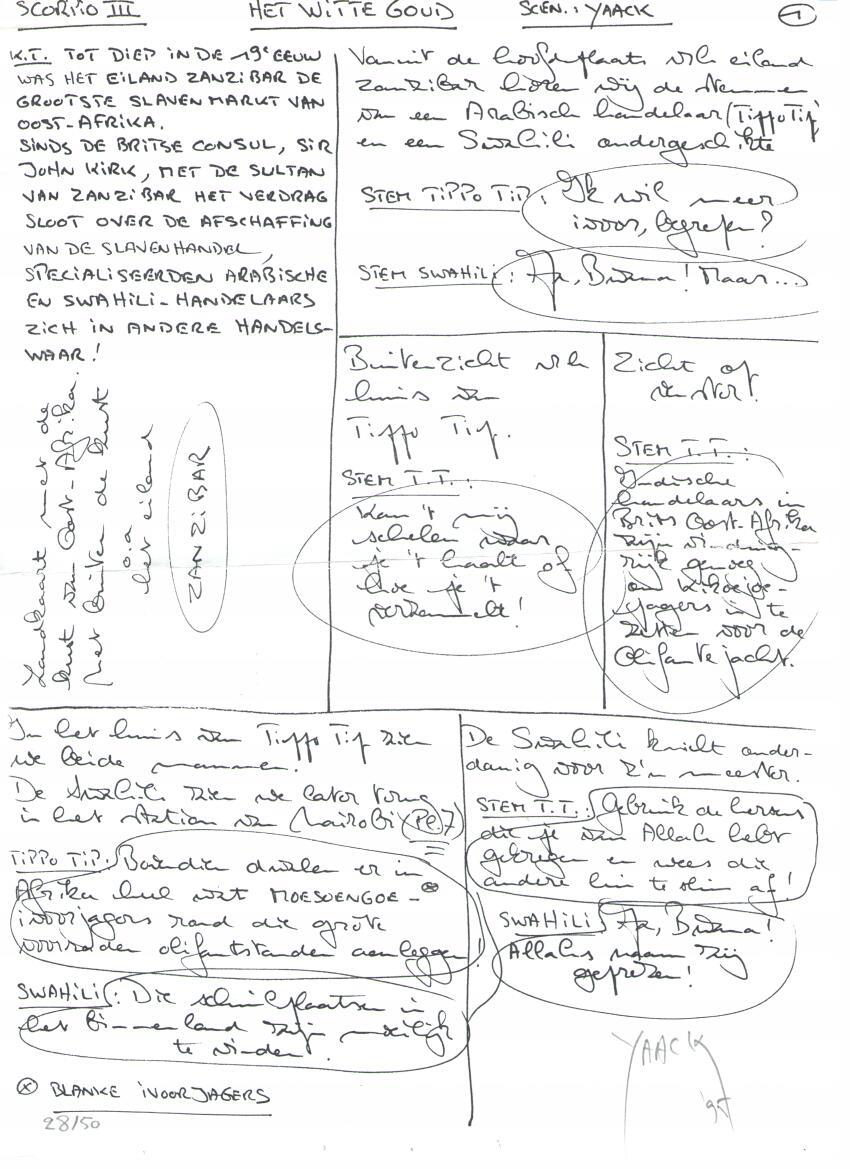 SCORPIO III HET WITTE GOUD SCEN.: YAACK 1
K.T. TOT DIEP IN DE 19e EEUW
WAS HET EILAND ZANZIBAR DE
GROOTSTE SLAVENMARKT VAN
OOST-AFRIKA.
SINDS DE BRITSE CONSUL, SIR
JOHN KIRK, MET DE SULTAN
VAN ZANZIBAR HET VERDRAG
SLOOT OVER DE AFSCHAFFING
VAN DE SLAVENHANDEL,
SPECIALISEERDEN ARABISCHE
EN SWAHILI-HANDELAARS
ZICH IN ANDERE HANDELS-
WAAR!
Landkaart met de
kust van Oost-Afrika.
met buiten de kust
o.a
het eiland
ZANZIBAR
Vanuit de hoofdplaats v/h eiland
Zanzibar horen wij de stemmen
van een Arabisch handelaar (Tippo Tip)
en een Swahili ondergeschikte
STEM TIPPO TIP: Ik wil meer
ivoor, begrepen?
STEM SWAHILI: Ja, Bwana! Maar...
Buitenzicht v/h
huis van
Tippo Tip.
STEM T.T.:
Kan 't mij
schelen waar
je 't haalt of
hoe je 't
verzamelt!
Zicht op
venster!
STEM T.T.:
Indische
handelaars in
Brits Oost-Afrika
zijn vinding-
rijk genoeg
om Kikoejoe-
jagers in te
zetten voor de
olifantejacht.
In het huis van Tippo Tip zien
we beide mannen.
De Swahili zien we later terug
in het station van Nairobi (Pl. 7)
TIPPO TIP: Bovendien dwalen er in
Afrika heel wat MOESOENGOE- ⊗
ivoorjagers rond die grote
voorraden olifantstanden aanleggen!
SWAHILI: Die schuilplaatsen in
het binnenland zijn moeilijk
te vinden.
⊗ BLANKE IVOORJAGERS
28/50
De Swahili knielt onder-
danig voor z'n meester.
STEM T.T.: Gebruik de hersens
die je van Allah hebt
gekregen en wees die
andere hin te slim af!
SWAHILI: Ja, Bwana!
Allahs naam zij
geprezen!
YAACK